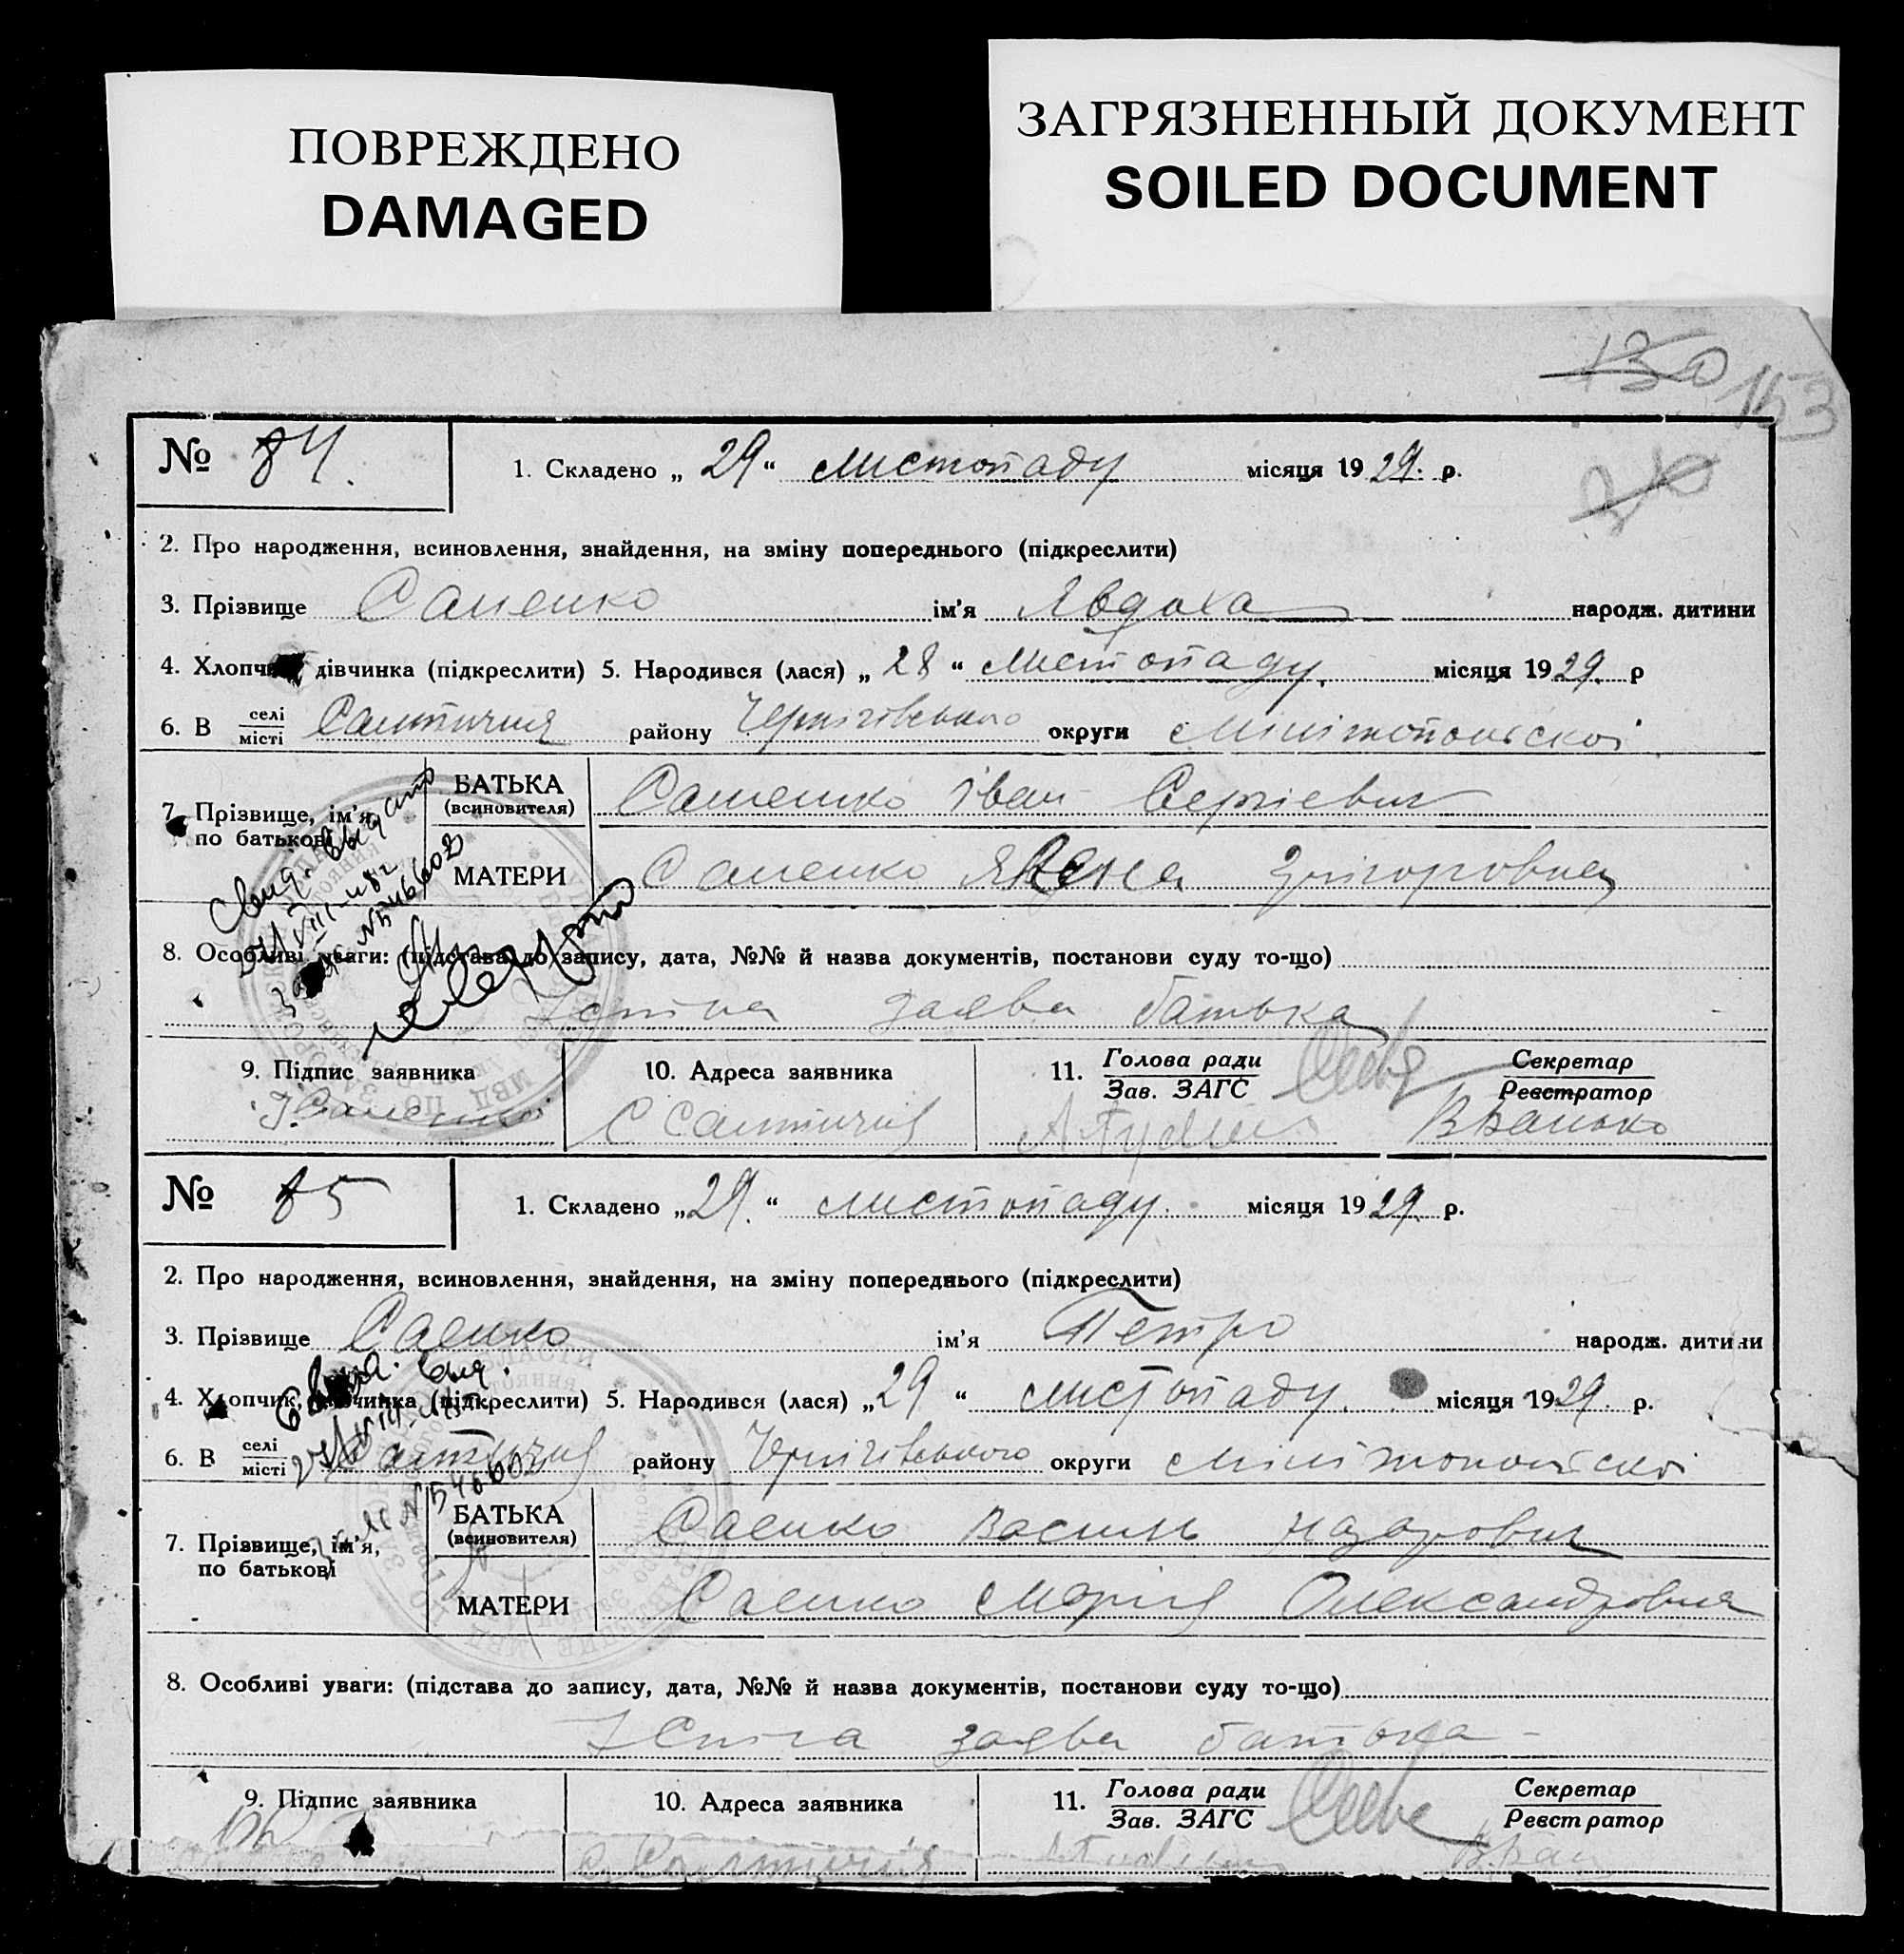 ПОВРЕЖДЕНО
DAMAGED
ЗАГРЯЗНЕННЫЙ ДОКУМЕНТ
SOILED DOCUMENT
130 153
№ 84.
1. Складено „ 29 “ листопаду місяця 1929. р.
2. Про народження, всиновлення, знайдення, на зміну попереднього (підкреслити)
3. Прізвище Саненко ім'я Явдоха народж. дитини
4. Хлопчик дівчинка (підкреслити) 5. Народився (лася) „ 28 “ листопаду. місяця 1929. р
6. В селі місті Салтичия району Чернігівського округи Мелітопольскої
7. Прізвище, ім'я, по батькові
БАТЬКА (всиновителя) Саненко Іван Сергіевич
МАТЕРИ Саненко Григоровна
8. Особливі уваги: (підстава до запису, дата, №№ й назва документів, постанови суду то-що)
Устна заява батька
9. Підпис заявника
10. Адреса заявника
11. Голова ради Зав. ЗАГС
Секретар Реєстратор
І. Саненко С Салтичия
№ 85
1. Складено „ 29. “ листопаду. місяця 1929. р.
2. Про народження, всиновлення, знайдення, на зміну попереднього (підкреслити)
3. Прізвище Саенко ім'я Петро народж. дитини
4. Хлопчик, дівчинка (підкреслити) 5. Народився (лася) „ 29 “ листопаду. місяця 1929. р.
6. В селі місті Салтичия району Чернігівського округи Мелітопольскої
7. Прізвище, ім'я, по батькові
БАТЬКА (всиновителя) Саенко Василь Назарович
МАТЕРИ Саенко Марія Олександровна
8. Особливі уваги: (підстава до запису, дата, №№ й назва документів, постанови суду то-що)
Устна заява батька
9. Підпис заявника
10. Адреса заявника
11. Голова ради Зав. ЗАГС
Секретар Реєстратор
с. Салтичия